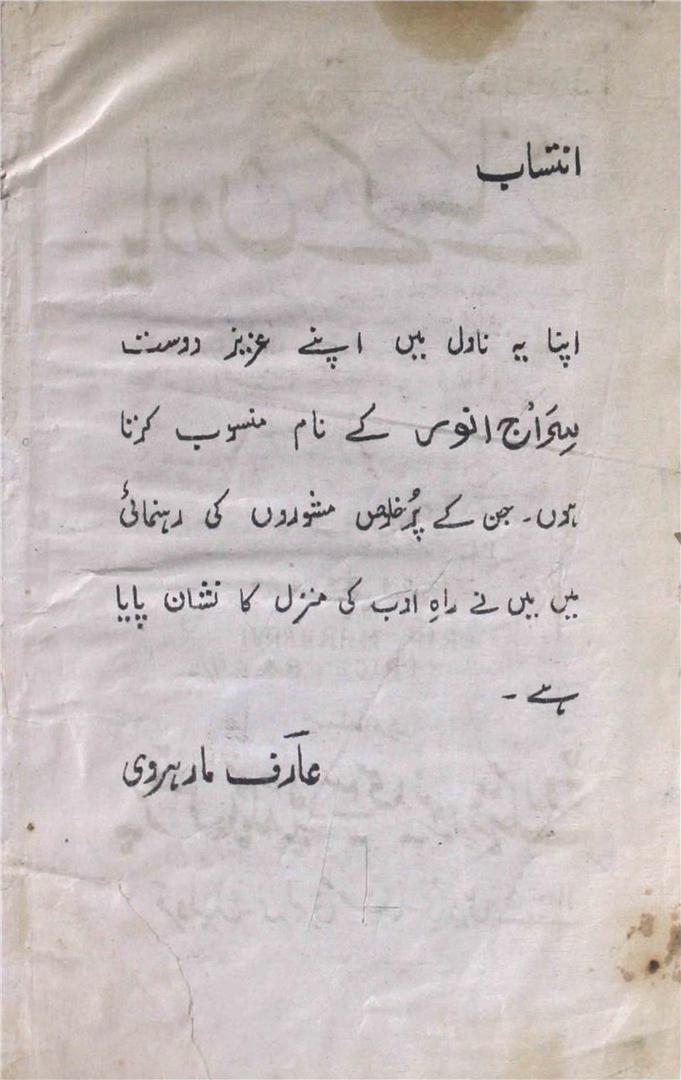 انتساب
اپنا یہ ناول میں اپنے عزیز دوست
سِرَاج انور کے نام منسوب کرتا
ہوں۔ جن کے پُرخلوص مشوروں کی رہنمائی
میں میں نے راہِ ادب کی منزل کا نشان پایا
ہے۔
عارف مارہروی